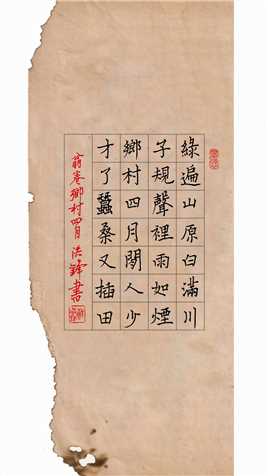 綠遍山原白滿川
子規聲裡雨如煙
鄉村四月閒人少
才了蠶桑又插田
翁卷鄉村四月 洪鋒書